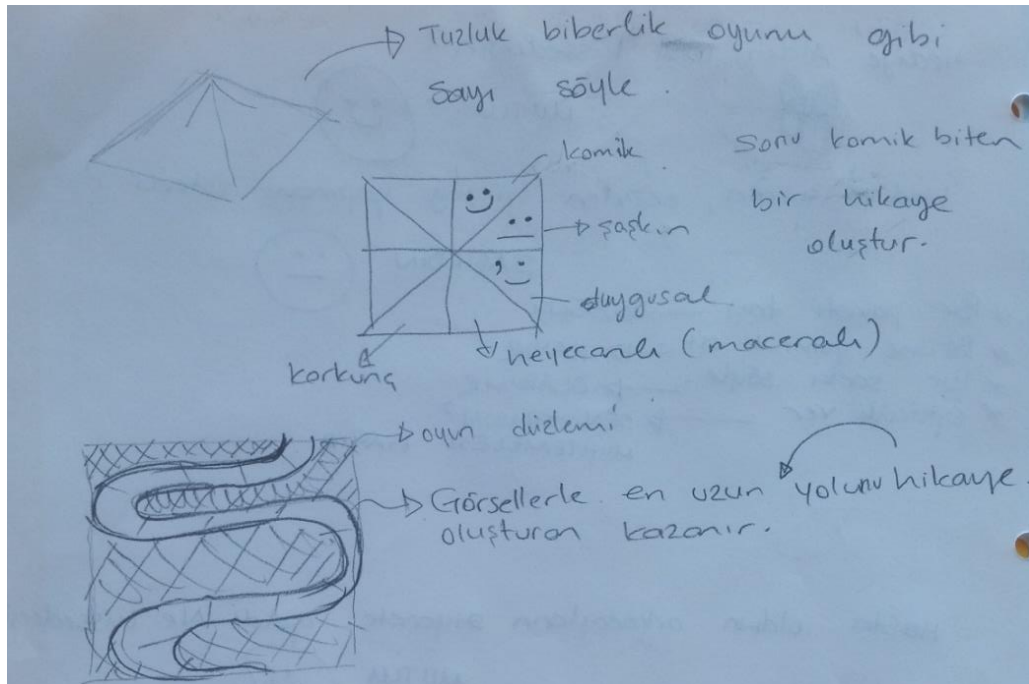 Tuzluk biberlik oyunu gibi
sayı söyle.
komik
şaşkın
duygusal
heyecanlı (maceralı)
korkunç
sonu komik biten
bir hikaye
oluştur.
oyun düzlemi
Görsellerle en uzun yolunu hikaye
oluşturan kazanır.